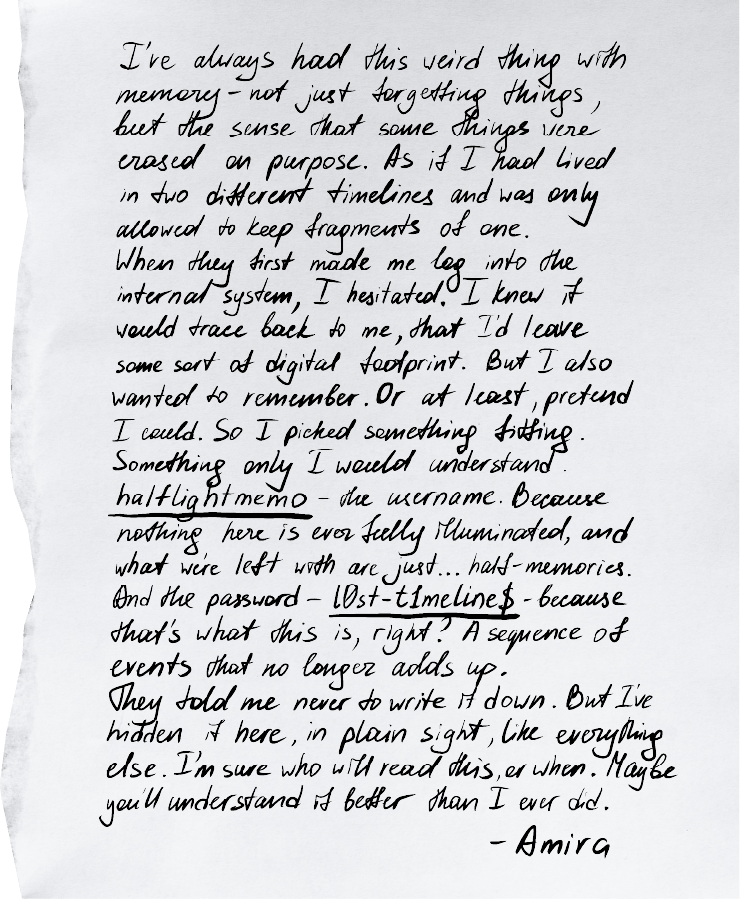 I've always had this weird thing with
memory – not just forgetting things,
but the sense that some things were
erased on purpose. As if I had lived
in two different timelines and was only
allowed to keep fragments of one.
When they first made me log into the
internal system, I hesitated. I knew it
would trace back to me, that I'd leave
some sort of digital footprint. But I also
wanted to remember. Or at least, pretend
I could. So I picked something fitting.
Something only I would understand.
halflightmemo – the username. Because
nothing here is ever fully illuminated, and
what we're left with are just... half-memories.
And the password – l0st-t1meline$ - because
that's what this is, right? A sequence of
events that no longer adds up.
They told me never to write it down. But I've
hidden it here, in plain sight, like everything
else. I'm sure who will read this, or when. Maybe
you'll understand it better than I ever did.
– Amira